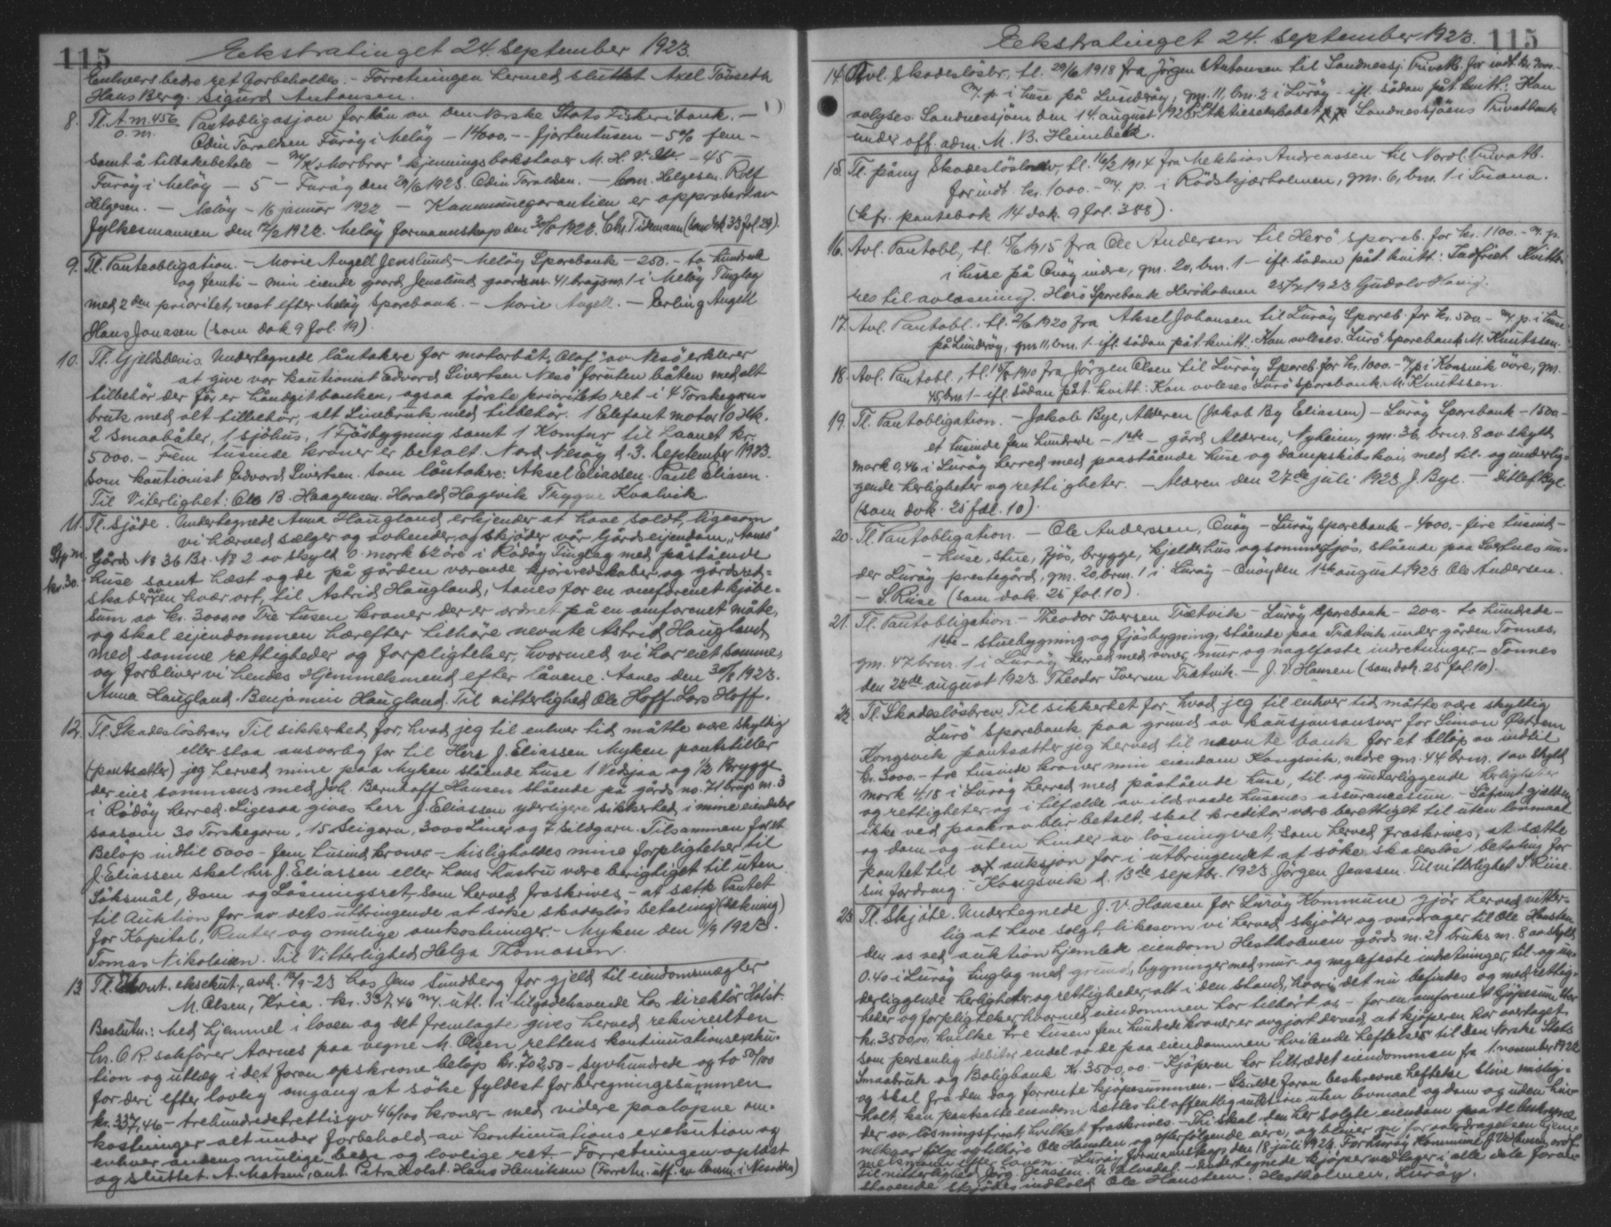 115
Ekstratinget 24. september 1923.
Enhvers bedre ret forbeholdes. - Forretningen hermed sluttet Axel Tøiseth
Hans Berg. Sigurd Antonsen.
8. Tl. A.m. 456 Pantobligasjon for lån av den Norske Stats Fiskeribank. -
o.m. Odin Toraldsen Furöy i Melöy - 14000.- - fjortentusen - 5% fem -
samt å tilbakebetale - m/k "Morbror" kjenningsbokstaver M. H. V. - 45
Furöy i Melöy - 5 - Furöy den 29/6 1923. Odin Toraldsen. - Helgesen. Rolf
Helgesen. - Melöy - 16 januar 1922 - Kommunegarantien er approbert av
fylkesmannen den 1922. Melöy formannskap den 1922. Chr. Tidemann (som dok 33 fol. 29).
9. Tl. Panteobligation. - Marie Angell Jenslund - Melöy Sporebank - 250.- to hundrede
og femti - min eiende gaard Jenslund gaardsnr 41 bruksnr. 1 i Melöy Tinglag
med 2den prioritet, nest efter Melöy Sporebank. - Marie Angell. - Erling Angell
Hans Jonasen (som dok 9 fol. 19).
10. Tl. Gjeldsbevis. Undertegnede låntakere for motorbåt "Olaf" av Nesö erklærer
at give vor kautionist Edvard Sivertsen Nesö foruten båten med alt
tilbehör der för er håndgit banken, ogsaa förste prioritets ret i 4 Torskegarns
bruk med alt tilbehör, alt Linebruk med tilbehör. 1 Elefant motor 10 Hk.
2 smaabåter, 1 sjöhus, 1 Fjösbygning samt 1 Komfur til laanet kr.
5000.- Fem tusinde kroner er betalt. Nord Nesöy d. 3. September 1923.
Som kautionist Edvard Sivertsen. Som låntakere: Aksel Eliassen Paul Eliasen.
Til Viterlighet: Ole B. Haagensen. Harald Hagevik Trygve Kvalvik
11. Tl. Sjöde. Undertegnede Anna Haugland erkjender at have soldt, ligesom
vi herved sælger og avhender, og skjöder vor Gårds eijendom, "Aanes"
Stp m. Gårds No 36 Br. No 2 av skyld 0 mark 62 öre i Rödöy Tinglag med påstående
kr. 30. huse samt hest og de på gården værende kjöreredskaber og gårdsred-
skaber av en hver art, til Astrid Haugland, Aanes for en omforenet kjöbe-
sum av kr. 3000.00 Tre tusen kroner der er ordnet på en omforenet måte,
og skal eijendommen herefter tilhöre nevnte Astrid Haugland,
med samme rættigheder og forpligtelser, hvormed vi har eiet samme,
og forbliver vi hendes Hjemmelsmend efter lovene. Aanes den 30/8 1923.
Anna Haugland. Benjamin Haugland. Til vitterlighed Ole Hoff. Lars Hoff.
12. Tl. Skadeslösbrev. Til sikkerhed for, hvad jeg til enhver tid måtte være skyldig
eller staa ansvarlig for til Herr J. Eliassen Myken pantstiller
(pantsætter) jeg herved mine paa Myken stående huse 1 Vedsjaa og 1/2 Brygge
der eies sammens med Joh. Bernhoff Hansen stående på gårds no. 71 brugs nr. 3
i Rödöy herred. Ligesaa gives herr J. Eliassen yderligere sikkerhed i mine eiendeler
saasom 30 Torskegarn, 15 Seigarn, 3000 Liner og 7 sildgarn. Tilsammen for et
Belöp indtil 5000 - fem tusind kroner - Misligholdes mine forpligtelser til
J. Eliassen skal hr. J. Eliassen eller hans hustru være berigtiget til uten
Söksmål, Dom og Lösningsret, som herved fraskrives, - at sætte Pantet
til Auktion for av dets utbringende at söke skadeslös betaling (dekning)
for Kapital, Renter og mulige omkostninger. - Myken den 1/9 1923.
Tomas Nikolaisen. Til Vitterlighed Helga Thomassen.
13. Tl. Kont. eksekut. avh. 12/9-23 hos Jens Sundberg for gjeld til eiendomsmægler
M. Olsen, Kria. kr. 337,46 m/. utl. i tilgodehavende hos direktör Holst.
Beslutn: Med hjemmel i loven og det fremlagte gives herved rekvirenten
hr. O.R. sakförer Aarnes paa vegne M. Olsen rettens kontinuationseksku-
tion og utlæg i det foran opskrevne belöp kr. 702,50 - syvhundrede og to 50/100
for deri efter lovlig omgang at söke fyldest for beregningssummen
kr. 337,46 - trehundredetrettisyv 46/100 kroner - med videre paalöpne om-
kostninger alt under forbehold av kontinuations exekution og
enhver andens mulige bedre og lovlige ret. - Forretningen oplæst
og sluttet. A. Matsen, aut. Petra Holst. Hans Henriksen (Forretn. utf. av lensm. i Nesna)
Ekstratinget 24. september 1923. 115
14. Avl. Skadeslösbr. tl. 29/6 1918 fra Jörgen Antonsen til Sandnessj. Privatb. for indt. kr.
m/. p. i huse på Lundröy, gm. 11, bm. 2 i Luröy - ifl. sådan påt. kvitt: Kan
avlyses Sandnessjöen den 14 august 1923. Aktieselskabet Sandnessjöens Privatbank
under off. adm. M. B. Heimbeck.
15. Tl. påny Skadeslösbrev, tl. 16/2 1914 fra Melkior Andreassen til Nordl. Privatb.
for indt. kr. 1000.- m/. p. i Rödskjærholmen, gm. 6, bm. 1 i Træna.
(kfr. pantebok 14 dok. 9 fol. 388).
16. Avl. Pantobl, tl. 1915 fra Ole Andersen til Herö sporeb. for kr. 1100.- m/. p.
i huse på Onöy indre, gm. 20, bm. 1 - ifl. sådan påt. kvitt: Indfriet Kvitte-
res til avlæsning. Herö Sporebank Heröholmen 23/7 1923 Gudolv Hovig.
17. Avl. Pantobl. tl. 2/6 1920 fra Aksel Johansen til Luröy Sporeb. for kr. 500.- m/. p. i huse
på Lundröy, gm. 11, bm. 1 ifl. sådan påt. kvitt. Kan avleses. Lurö Sporebank M. Knutssen.
18. Avl. Pantobl., tl. 1910 fra Jörgen Olsen til Luröy Sporeb. for kr. 1000.- m/ p i Konsvik övre, gm.
45, bm. 1 - ifl. sådan påt. kvitt: Kan avleses Lurö Sporebank M. Knutssen.
19. Tl. Pantobligation. - Jakob Bye, Alderen (Jakob By Eliassen) - Luröy Sporebank - 1500 -
et tusinde fem hundrede - 1ste - gård Alderen, Nyheim, gm. 36, brnr. 8 av skyld
mark 0,46 i Luröy herred med paastående huse og dampskibskai med til- og underlig-
gende herligheter og rettigheter. - Alderen den 27de juli 1923 J. Bye. - Ditlef Bye
(som dok. 25 fol. 10).
20. Tl. Pantobligation - Ole Andersen, Onöy - Luröy Sporebank - 4000.- fire tusind -
- huse, stue, fjös, brygge, kjelder, hus og sommerfjös, stående paa un-
der Luröy prestegård, gm. 20, brnr. 1 i Luröy - Onöy den 1ste august 1923 Ole Andersen.
- S. Riise (som dok. 25 fol. 10).
21. Tl. Pantobligation - Theodor Iversen Trætvik - Luröy Sporebank - 200.- to hundrede -
1ste - stuebygning og fjösbygning, stående paa Trætvik under gården Tonnes,
gm. 47 brnr. 1 i Luröy herred med ovner, mur og naglfaste indretninger. - Tonnes
den 22de august 1923 Theodor Iversen Trætvik. - J. V. Hansen (som dok. 25 fol. 10).
22. Tl. Skadeslösbrev. Til sikkerhet for hvad jeg til enhver tid måtte være skyldig
Lurö Sporebank paa grund av kausjonsansvar for Simon
Kongsvik pantsætter jeg herved til nævnte bank for et belöp av indtil
kr. 3000.- tre tusinde kroner min eiendom Kongsvik, nedre gnr. 44 brnr. 1 av skyld
mark 4,18 i Luröy herred med påstående huse, til- og underliggende herligheter
og rettigheter og i tilfælde av ildsvaade husenes assurancesum. - Såfremt gjælden
ikke ved paakrav blir betalt, skal kreditor være berettiget til uten lovmaal
og dom og uten hinder av lösningsret, som herved fraskrives, at sætte
pantet til auksjon for i utbringendet at söke skadeslös betaling for
sin fordring. - Kongsvik d. 13de septbr. 1923 Jörgen Jenssen. Til vitterlighet S. Riise.
23. Tl. Skjöte. Undertegnede J. V. Hansen for Luröy Kommune gjör herved vitter-
lig at have solgt, likesom vi herved skjöter og overdrager til Ole Hansten
den os ved auktion hjemlede eiendom Hestholmen gårds nr. 21 bruks nr. 8 av skyld
0.40 i Luröy tinglag med grund, bygninger med mur og naglefaste indretninger, til- og un-
derliggende herligheter og rettigheter, alt i den stand, hvori det nu befindes og med rettig-
heder og forpligtelser, hvormed eiendommen har tilhört os - for en omforenet kjöpesum stor
kr. 3500.00, hvilke tre tusen fem hundrede kroner er avgjort derved at kjöperen har overtaget
som personlig debitor endel av de paa eiendommen hvilende heftelser til Den Norske Stats
Smaabruk og Boligbank kr. 3500,00. - Kjöperen har tiltrædet eiendommen fra 1. november 1922
og skal fra den dag forrente kjöpesummen. - Skulde foran beskrevne heftelse blive mislig-
holdt, kan pantsatte eiendom sættes til offentlig auktion uten lovmaal og dom og uden hin-
der av lösningsfrist, hvilket fraskrives. - Thi skal den her solgte eiendom paa de beskrevne
vilkaar fölge og tilhöre Ole Hansten og efterfölgende eiere, og bliver vi for overdragelsen hjem-
melsmænd efter loven. - Luröy formannskap, den 18 juli 1923. For Luröy Kommune J. V. Hansen, ordf.
Til vitterlighet Jörg. Jenssen. N. Alvedal - Undertegnede kjöper vedtager i alle dele foran-
staaende skjödes indhold. Ole Hansten. Hestholmen, Luröy.